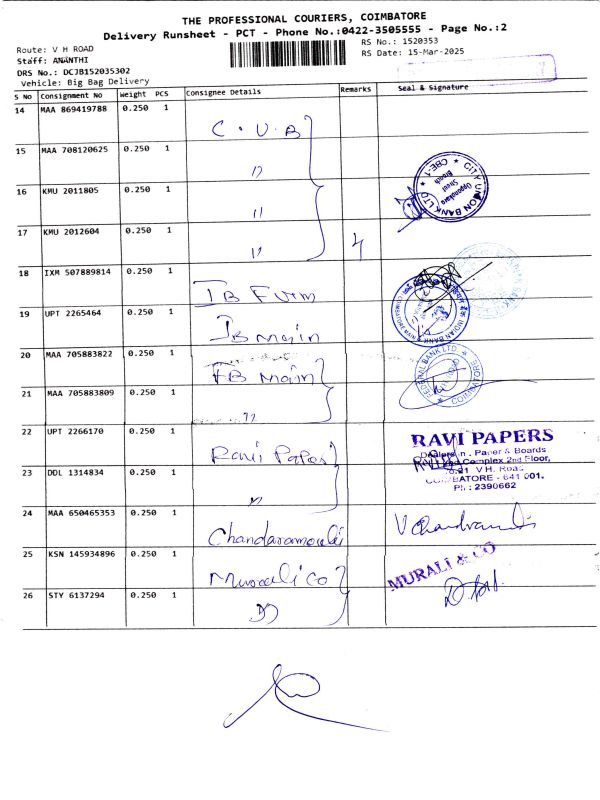 THE PROFESSIONAL COURIERS, COIMBATORE
Delivery Runsheet - PCT - Phone No.:0422-3505555 - Page No.:2
Route: V H ROAD
RS No.: 1520353
Staff: ANANTHI
RS Date: 15-Mar-2025
DRS No.: DCJB152035302
Vehicle: Big Bag Delivery
S No Consignment No Weight PCS Consignee Details Remarks Seal & Signature
14 MAA 869419788 0.250 1 C.U.B
15 MAA 708120625 0.250 1 ''
16 KMU 2011805 0.250 1 ''
CITY UNION BANK LTD CBE-1
17 KMU 2012604 0.250 1 '' 4
18 IXM 507889814 0.250 1 IB
19 UPT 2265464 0.250 1 IB main
INDIAN BANK
20 MAA 705883822 0.250 1 FB main
FEDERAL BANK LTD COIMBATORE
21 MAA 705883809 0.250 1 ''
22 UPT 2266170 0.250 1 Ravi Papers
RAVI PAPERS
Paper & Boards
Complex 2nd Floor,
V.H. Road
COIMBATORE - 641 001.
Ph : 2390662
23 DDL 1314834 0.250 1 ''
24 MAA 650465353 0.250 1 Chandaramouli
25 KSN 145934896 0.250 1 Murali co
MURALI & CO
26 STY 6137294 0.250 1 ''